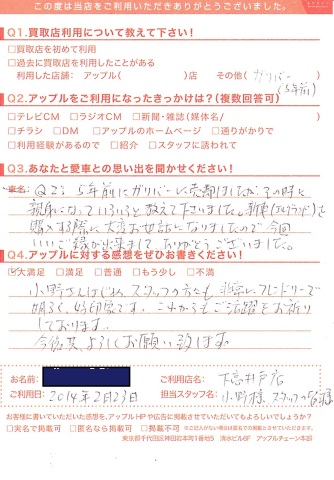 この度は当店をご利用いただきありがとうございました。
Q1.買取店利用について教えて下さい！
□買取店を初めて利用
□過去に買取店を利用したことがある
利用した店舗： アップル（ ）店 その他（ガリバー）
(5年前)
Q2.アップルをご利用になったきっかけは？（複数回答可）
□テレビCM □ラジオCM □新聞・雑誌（媒体名/ ）
□チラシ □DM □アップルのホームページ □通りがかりで
□利用経験があるので □紹介 □スタッフに誘われて
Q3.あなたと愛車との思い出を聞かせてください！
車名： Q2: 5年前にガリバーに売却しましたが、その時に
親身になっていろいろと教えて下さいました。新車(エルグランド)を
購入する際に大変お世話になりましたので今回
いいご縁が出来まして、ありがとうございました。
Q4.アップルに対する感想をぜひお書きください！
□大満足 □満足 □普通 □もう少し □不満
小野さんはじめ、スタッフの方たちも非常にフレンドリーで
明るく、好印象です。これからもご活躍をお祈り
しております。
今後共、よろしくお願い致します。
お名前：
ご利用店名： 下高井戸店
ご利用日： 2014年2月23日
担当スタッフ名： 小野様 スタッフの皆様
お客様に書いていただいた感想を、アップルHPや広告に掲載させていただいてもよろしいでしょうか？
□実名で掲載可 □匿名なら掲載可 □掲載不可 ※ご記入がない場合は匿名での掲載とさせていただきます。
東京都千代田区神田岩本町1番地5 清水ビル6F アップルチェーン本部